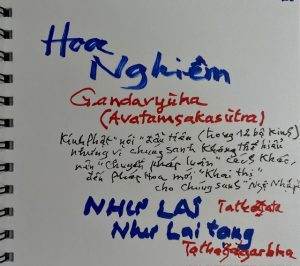 Hoa
Nghiêm
Gandavyūha
(Avataṃsakasūtra)
Kinh Phật "nói" đầu tiên (trong 12 bộ kinh)
nhưng vì chúng sanh không thể hiểu
nên "chuyển pháp luân" cách khác,
đến Pháp Hoa mới "Khai thị"
cho chúng sanh "Ngộ Nhập"
NHƯ LAI Tathāgata
Như Lai tạng
Tathāgatagarbha